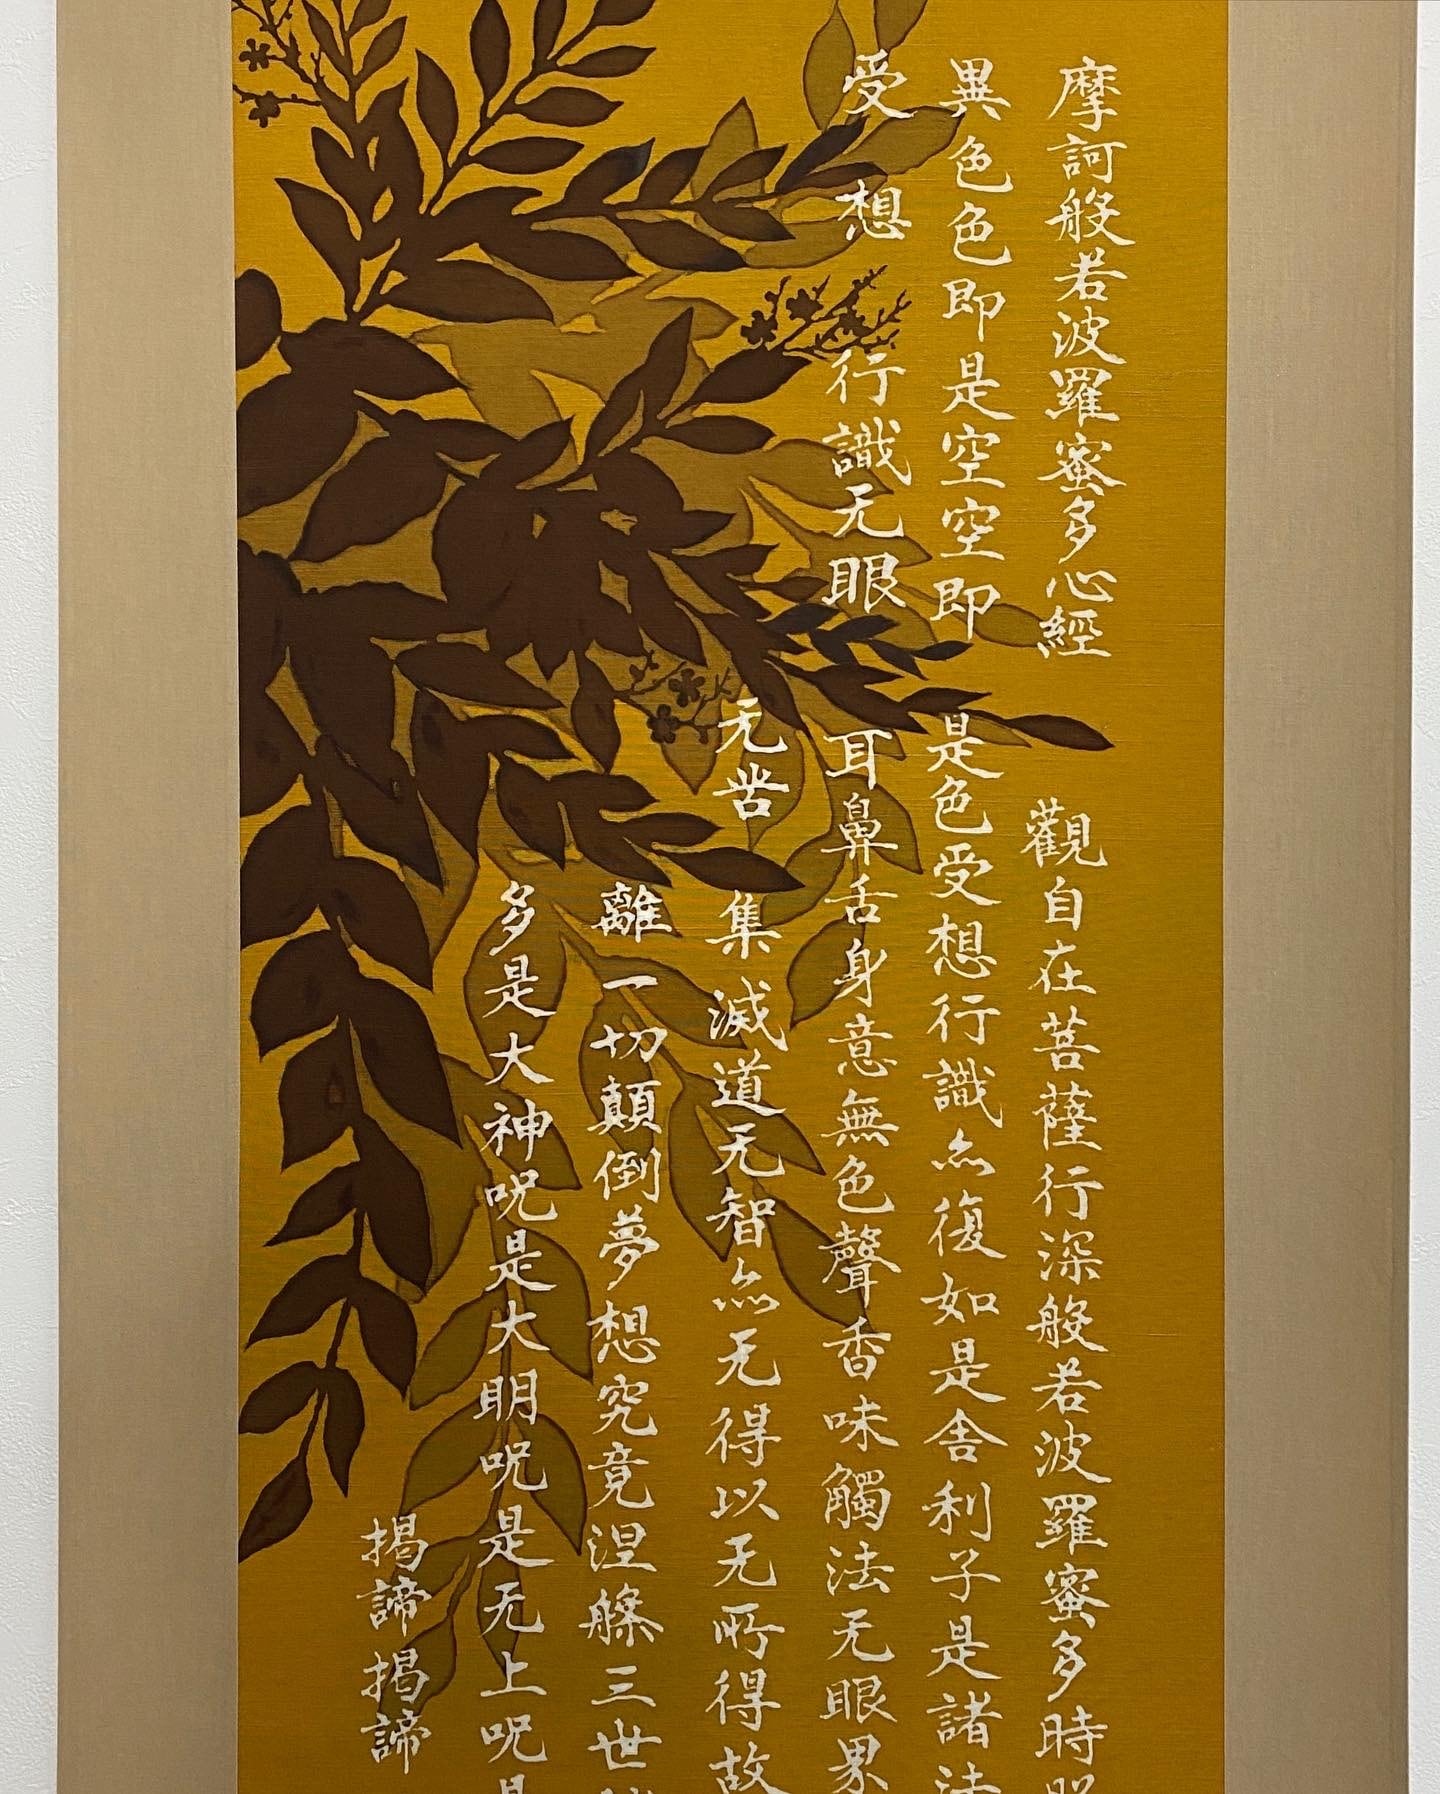 摩訶般若波羅蜜多心經 觀自在菩薩行深般若波羅蜜多時照
異色色即是空空即 是色受想行識亦復如是舎利子是諸法
受想行識无眼 耳鼻舌身意無色聲香味觸法无眼界
无苦集滅道无智亦无得以无所得故
離一切顛倒夢想究竟涅槃三世
多是大神呪是大明呪是无上呪是
掲諦掲諦